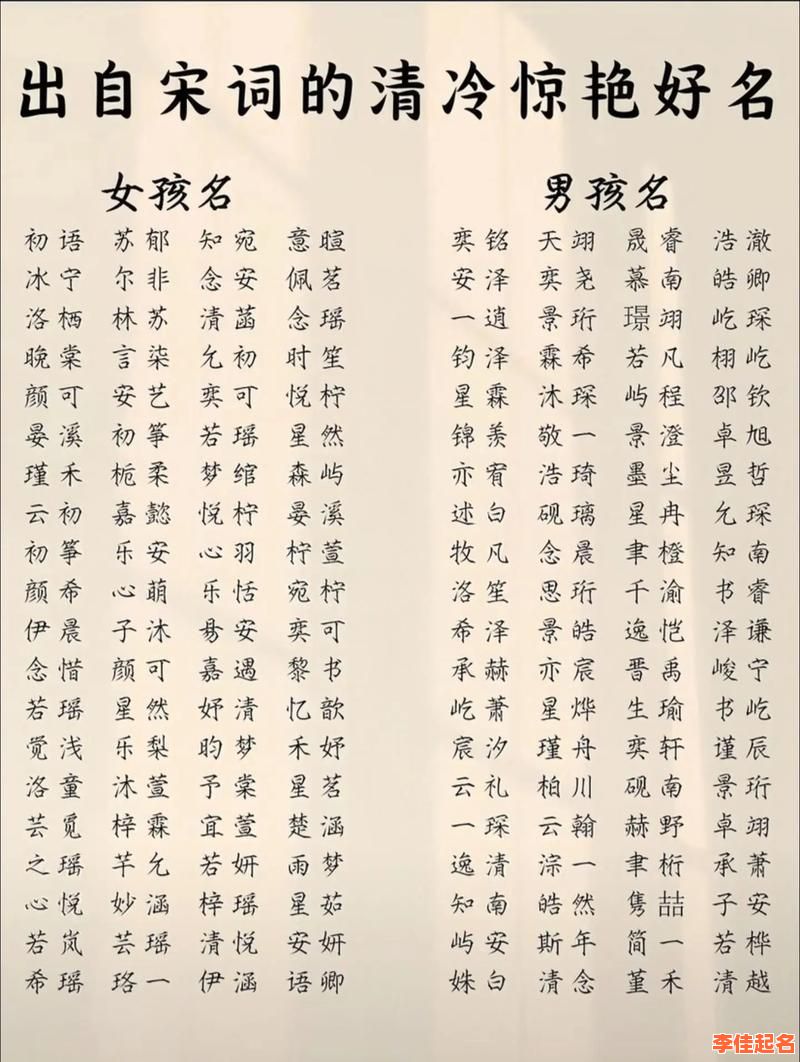 出自宋词的清冷惊艳好名
女孩名 男孩名
初语 苏郁 知宛 意暄 奕铭 天翊 晟睿 浩澈
冰宁 尔非 念安 佩茗 安泽 奕尧 慕南 皓卿
洛栖 林苏 清菡 念瑶 一逍 景珩 璟翊 屹琛
晚棠 言柒 允初 时笙 钧泽 霖希 若凡 栩屹
颜可 安艺 奕可 悦柠 星霖 沐琛 屿程 邵钦
晏溪 初筝 若瑶 星然 锦羡 敬一 景澄 卓旭
瑾禾 栀柔 梦绾 森屿 亦宥 浩琦 墨尘 昱哲
云初 嘉懿 悦柠 晏溪 述白 砚璃 星冉 允琛
初筝 乐安 心羽 柠萱 牧凡 念晨 聿橙 知南
颜希 心萌 乐恬 宛柠 洛笙 思珩 千渝 书睿
伊晨 子沐 易安 奕可 希泽 景皓 逸恺 泽谦
念惜 颜可 嘉遇 黎书 承赫 亦宸 晋禹 峻宁
若瑶 星然 妤清 忆歆 屹萧 星烨 生瑜 书屹
觉浅 乐梨 昀梦 禾妤 宸汐 瑾舟 奕轩 谨辰
洛童 沐萱 予棠 星茗 云礼 柏川 砚南 景珩
芸觅 梓霖 宜萱 楚涵 一琛 云翰 赫野 卓翊
之瑶 芊允 若妍 雨梦 逸清 淙一 聿桁 承萧
心悦 妙涵 梓瑶 星茹 知南 皓然 隽喆 子安
若岚 芸瑶 清悦 安妍 屿安 斯年 简一 若桦
希瑶 珞一 伊涵 语卿 姝白 清念 堇禾 清越
李佳起名